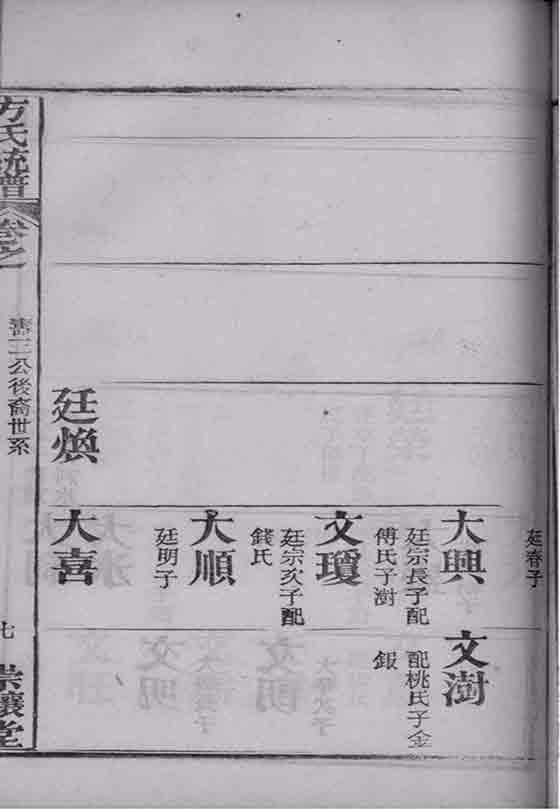 廷春子
大興
廷宗長子配
傅氏子澍
文澍
配桃氏子金
鍜
文瓊
廷宗次子配
錢氏
大順
廷明子
廷煥
大喜
方氏統譜
卷之一
壽三公後裔世系
七
崇讓堂